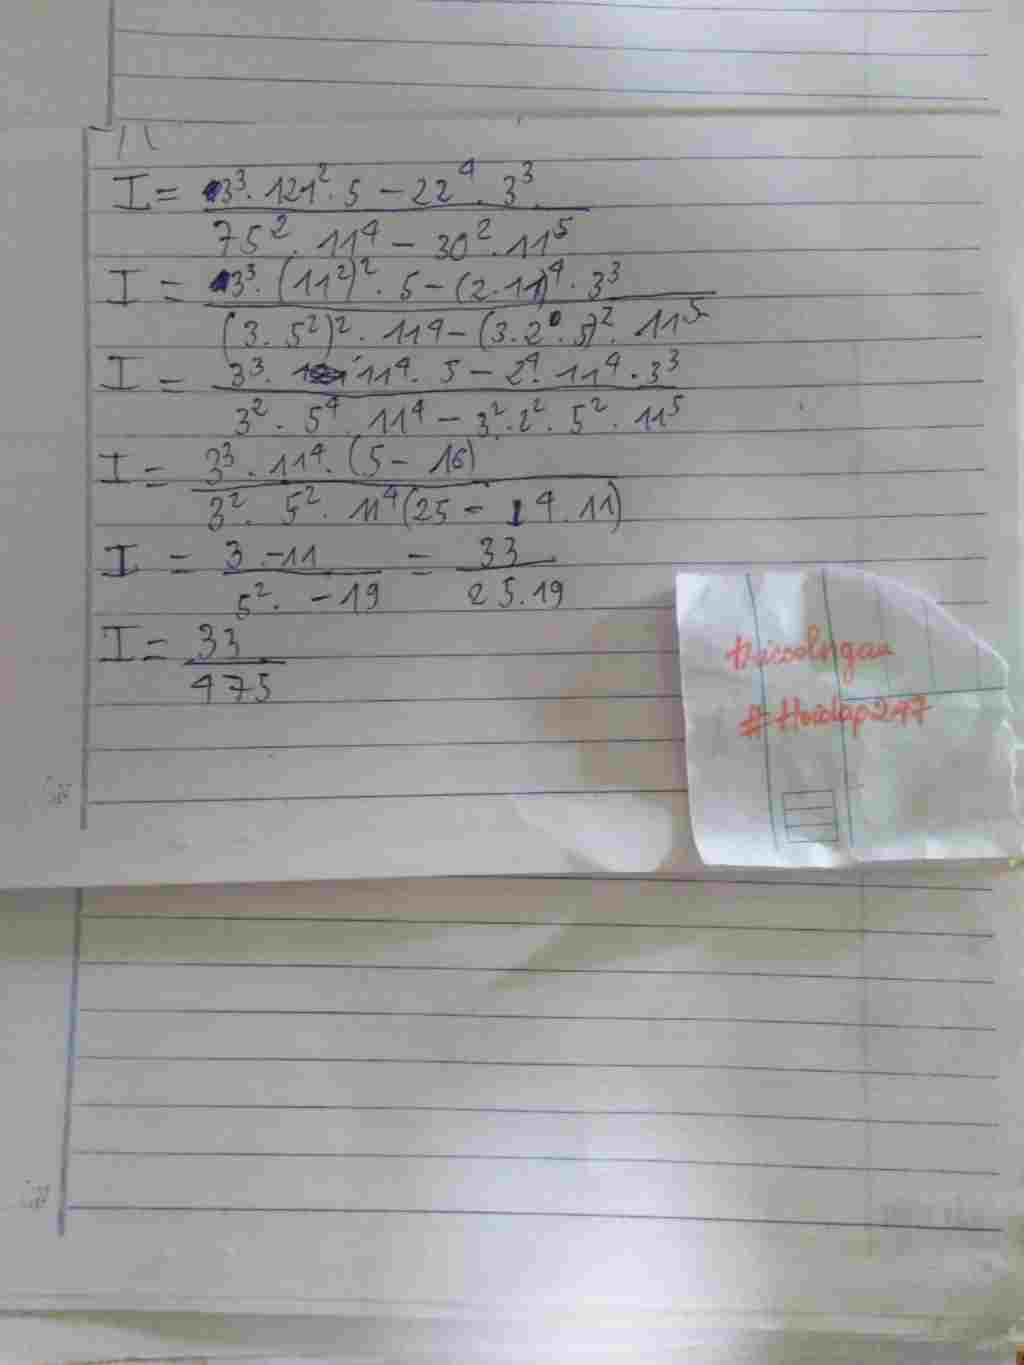 I = 3³. 121². 5 - 22⁴. 3³
75². 11⁴ - 30². 11⁵
I = 3³. (11²)². 5 - (2.11)⁴. 3³
(3. 5²)². 11⁴ - (3.2.5)². 11⁵
I = 3³. 11⁴. 5 - 2⁴. 11⁴. 3³
3². 5⁴. 11⁴ - 3². 2². 5². 11⁵
I = 3³. 11⁴. (5 - 16)
3². 5². 11⁴(25 - 4.11)
I = 3. -11 = 33
5². -19 25.19
I = 33
475
#Hoidap247